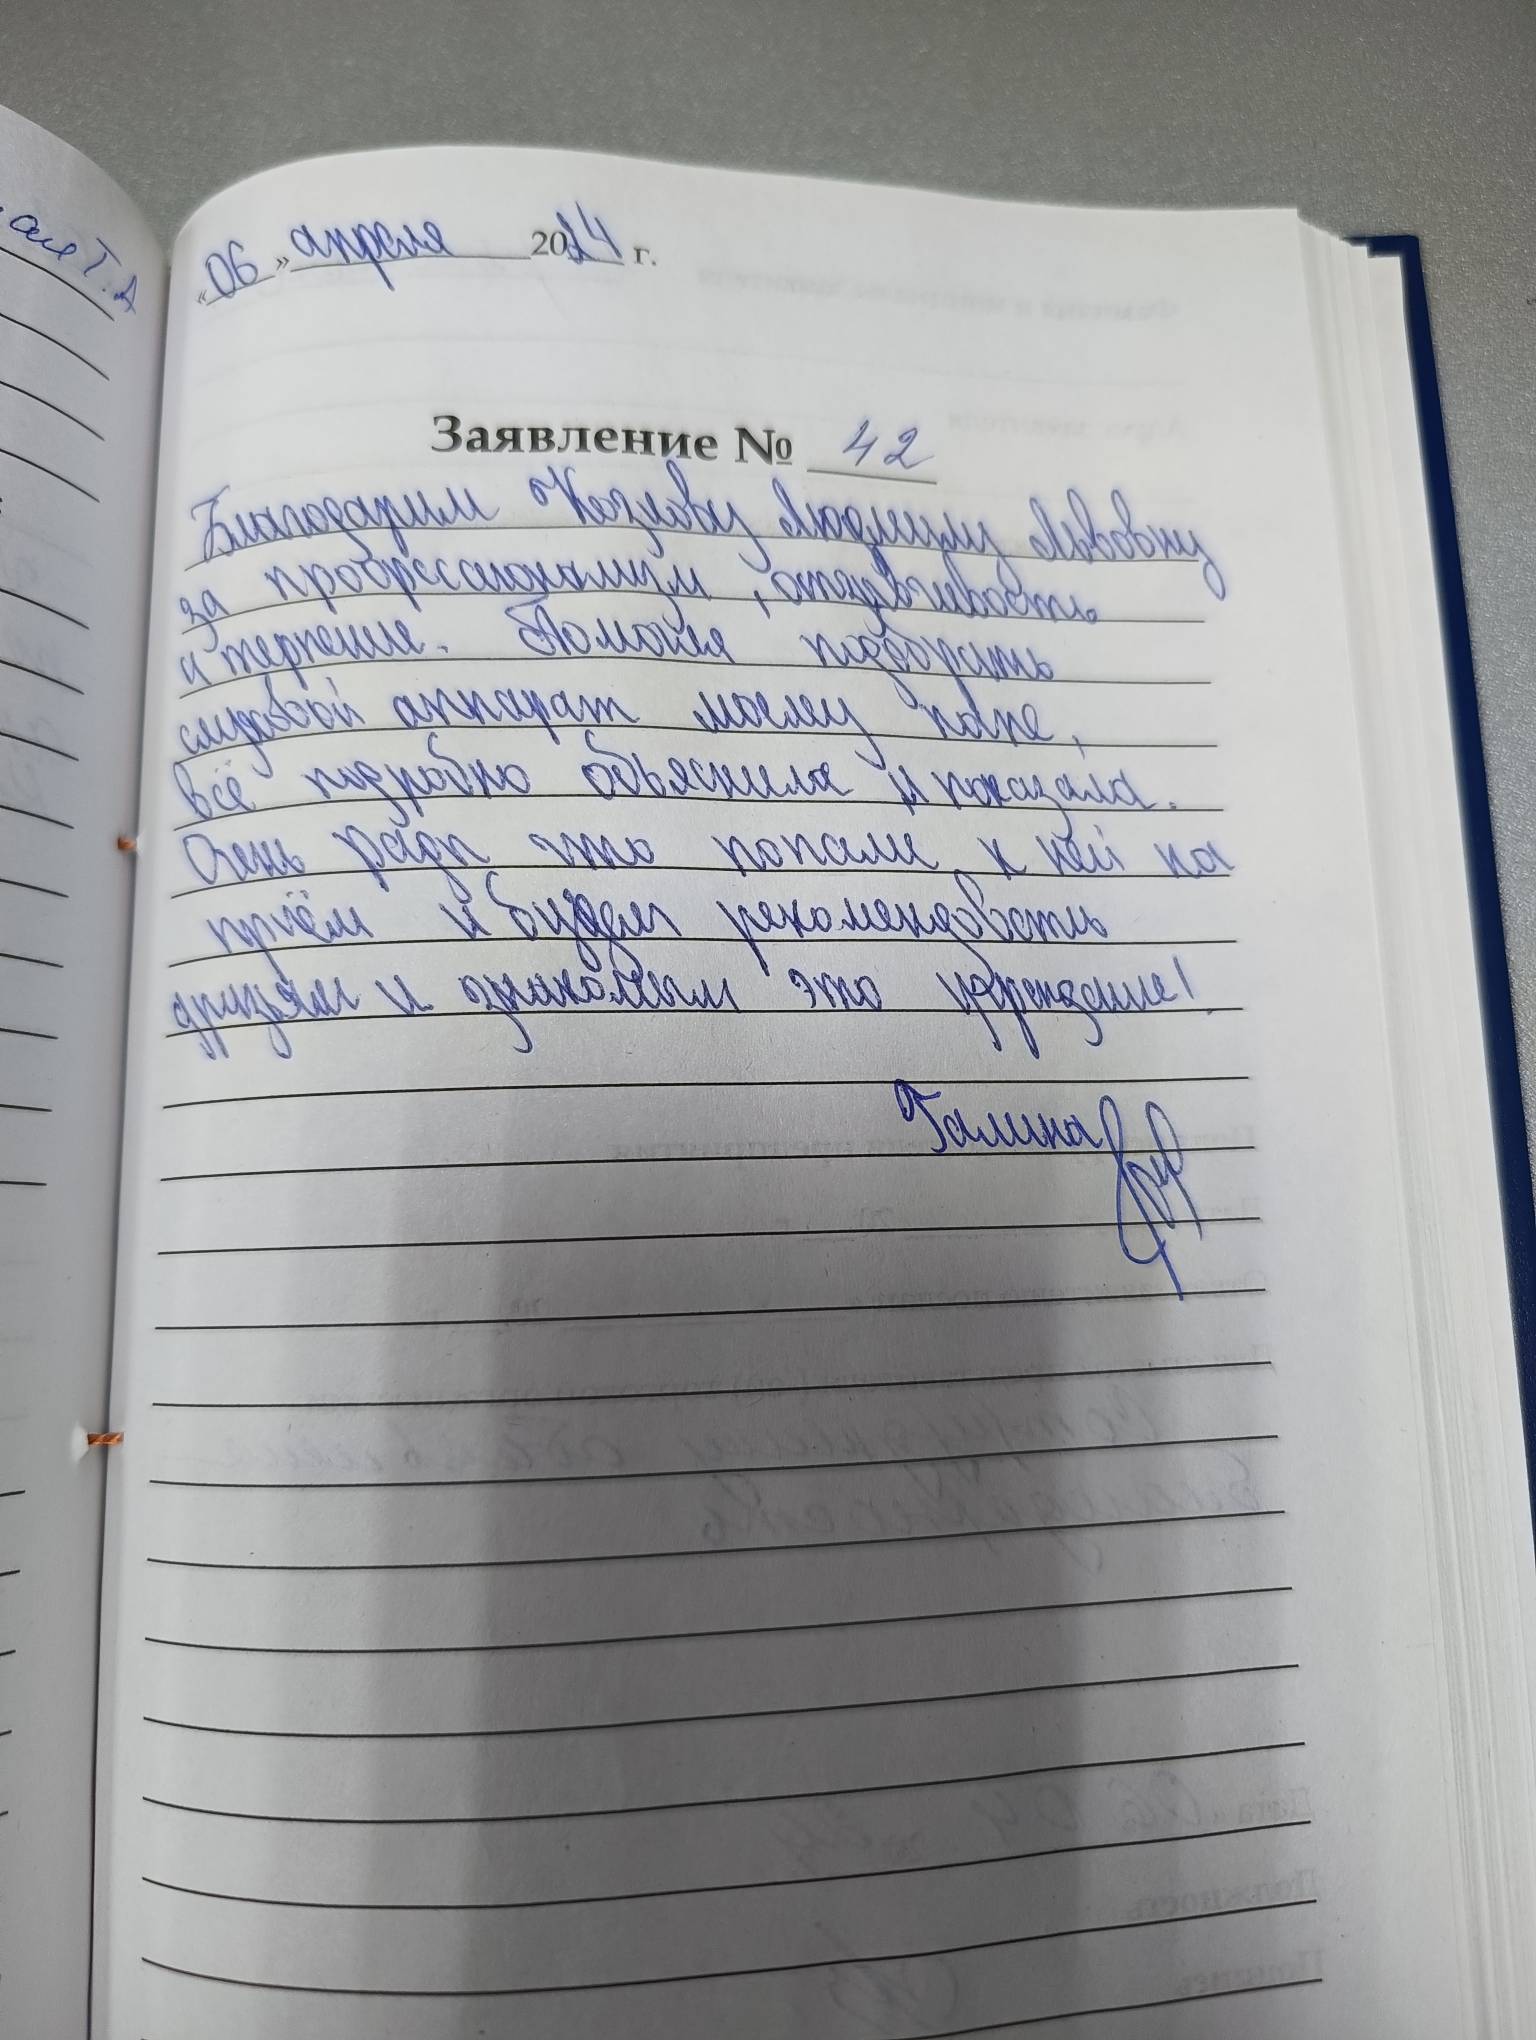 «06» апреля 2024 г.
Заявление № 42
Благодарим Козлову Людмилу Львовну
за профессионализм, отзывчивость
и терпение. Помогла подобрать
слуховой аппарат моему папе,
всё подробно объяснила и показала.
Очень рады что попали к ней на
приём и будем рекомендовать
друзьям и знакомым это учреждение!
Галина